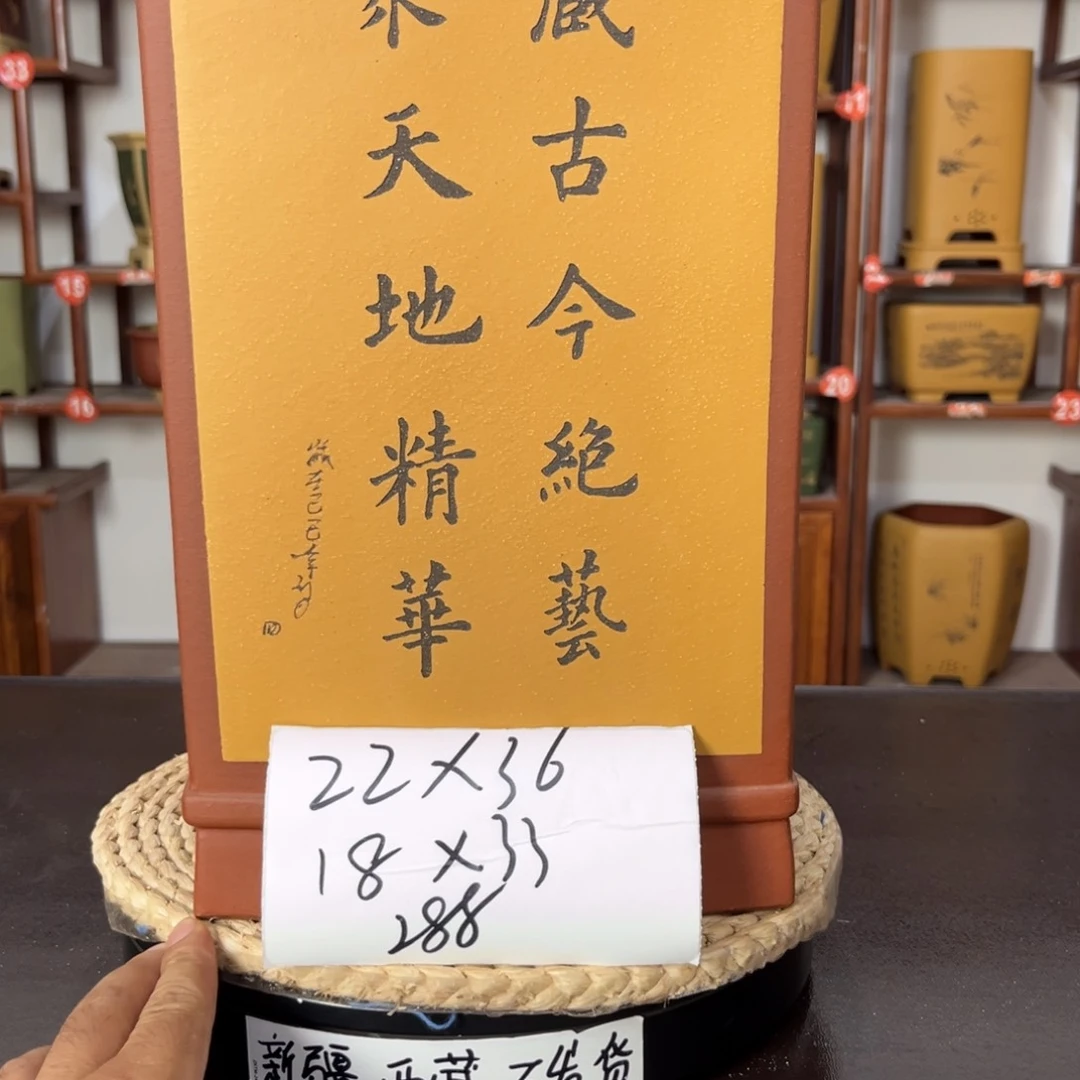 藏古今絕藝
聚天地精華
22×36
18×33
288
新疆 西藏 不发货
33
15
16
20
23